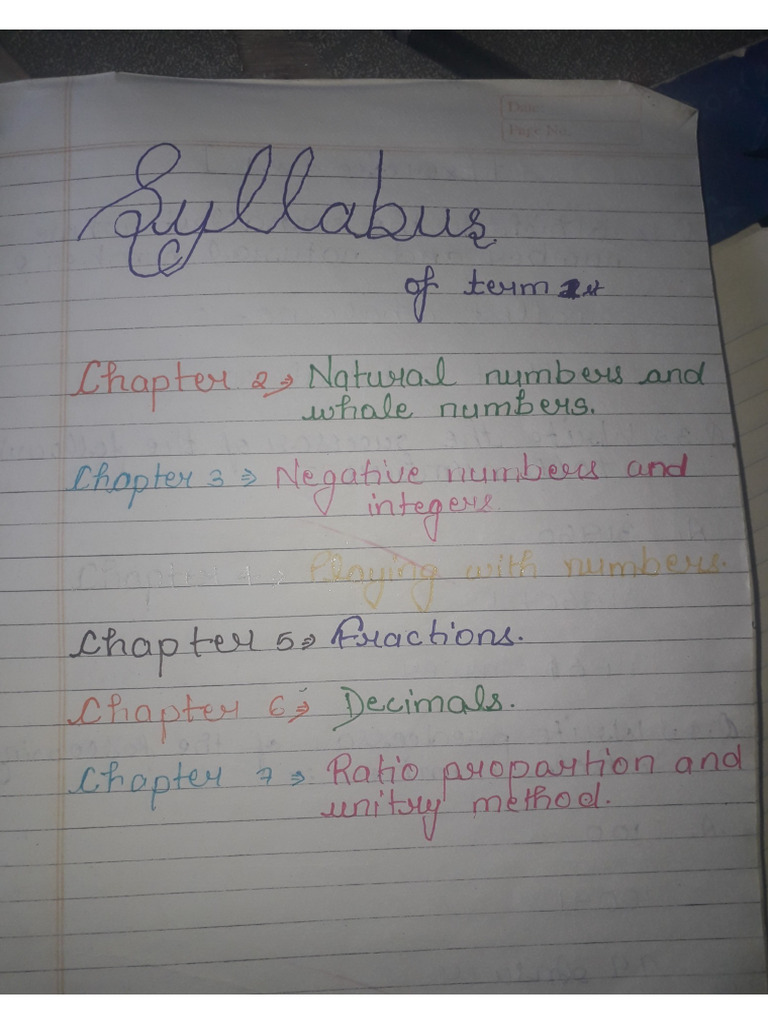 Date
Page No.
Syllabus
of term 1st
Chapter 2 ⇒ Natural numbers and
whale numbers.
Chapter 3 ⇒ Negative numbers and
integers
Chapter 4 ⇒ Playing with numbers.
Chapter 5 ⇒ Fractions.
Chapter 6 ⇒ Decimals.
Chapter 7 ⇒ Ratio propartion and
unitry method.